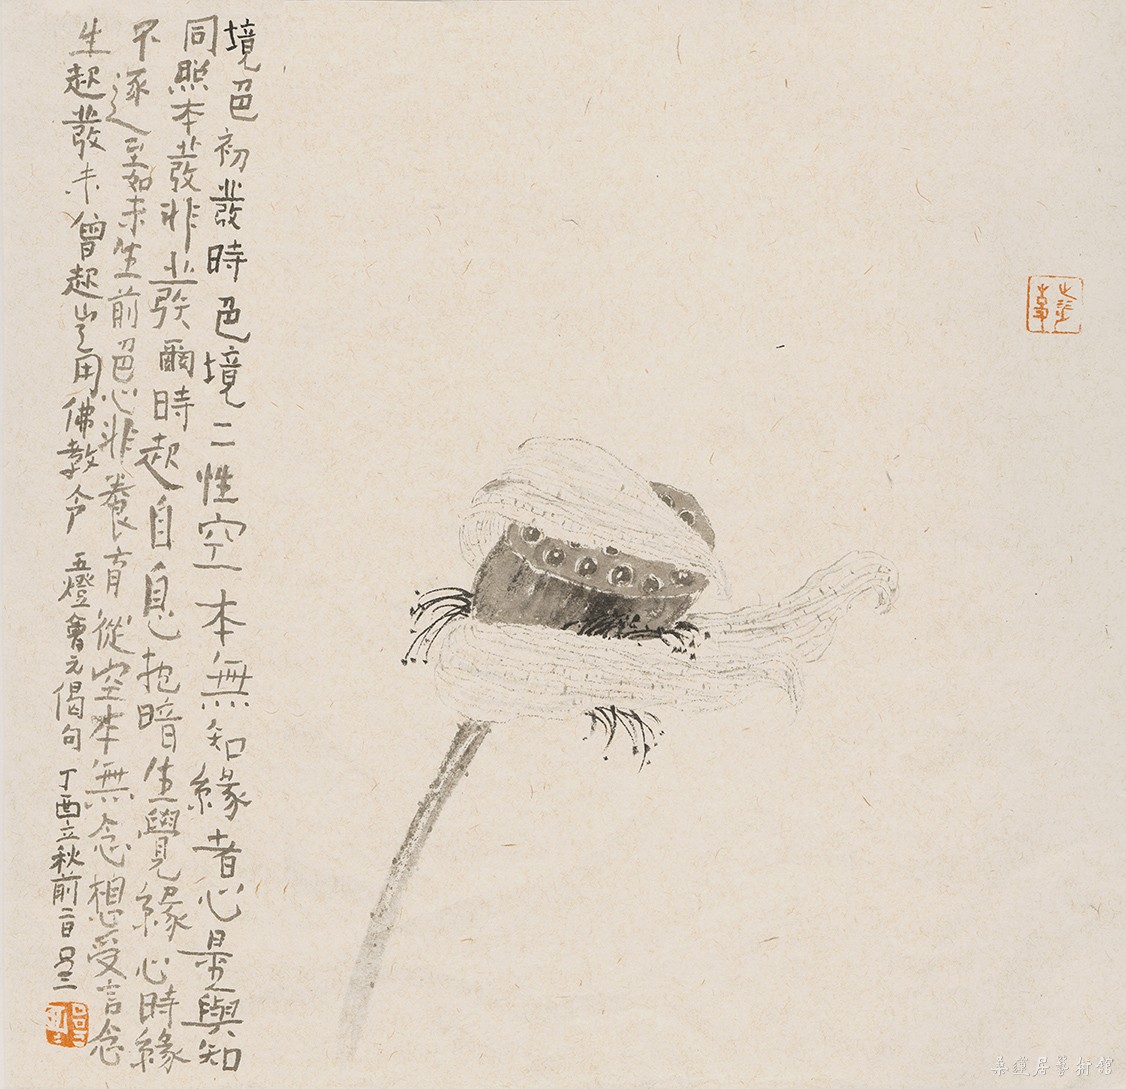 境色初發時色境二性空本無知緣者心量與知
同照本發非發爾時起自息抱暗生覺緣心時緣
不逐至如未生前色心非養育從空本無念想受言念
生起發未曾起豈用佛教令 五燈會元偈句 丁酉立秋前二日
桑蓮居藝術館